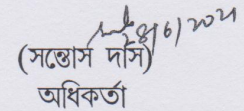 28/6/2021
(সন্তোস দাস)
অধিকৰ্তা